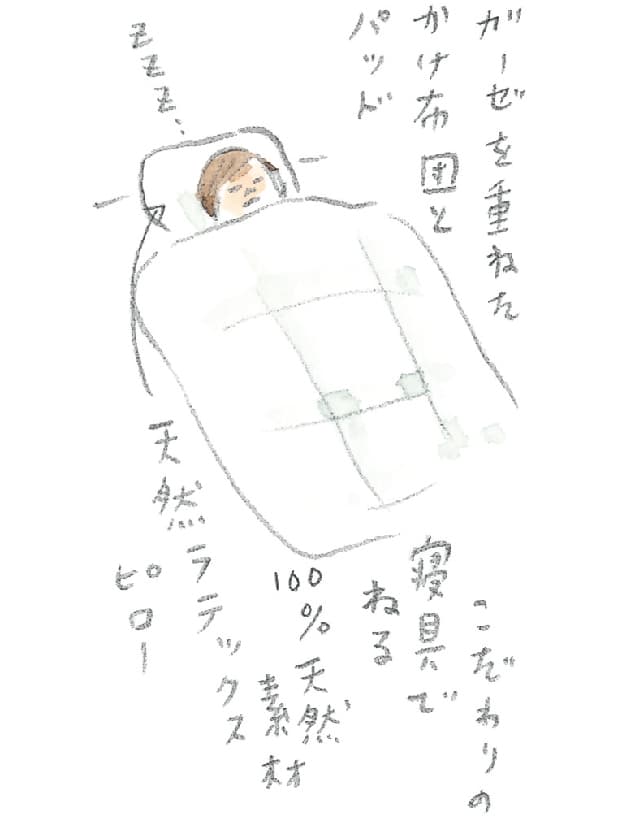 ガーゼを重ねた
かけ布団と
パッド
zzz、
こだわりの
寝具で
ねる
100%天然
素材
天然ラテックス
ピロー